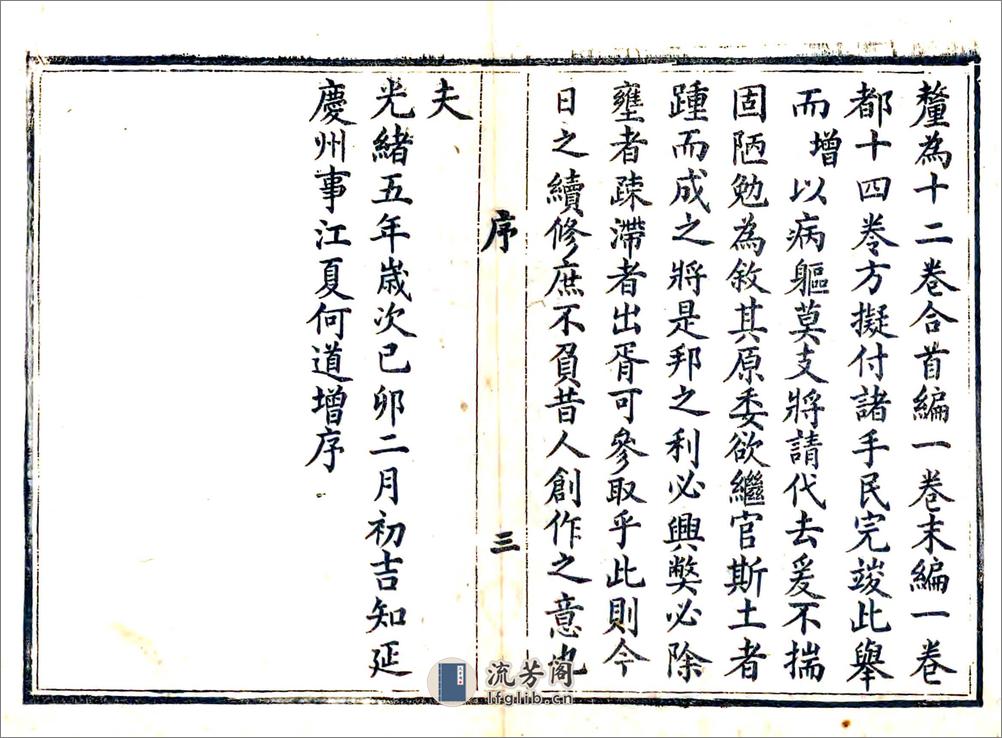 釐為十二卷合首編一卷末編一卷
都十四卷方擬付諸手民完竣此舉
而增以病軀莫支將請代去爰不揣
固陋勉為敘其原委欲繼官斯土者
踵而成之將是邦之利必興獘必除
壅者疎滯者出胥可參取乎此則今
日之續修庶不負昔人創作之意也
序 三
夫
光緒五年歲次己卯二月初吉知延
慶州事江夏何道增序
流芳阁
lfglib.cn